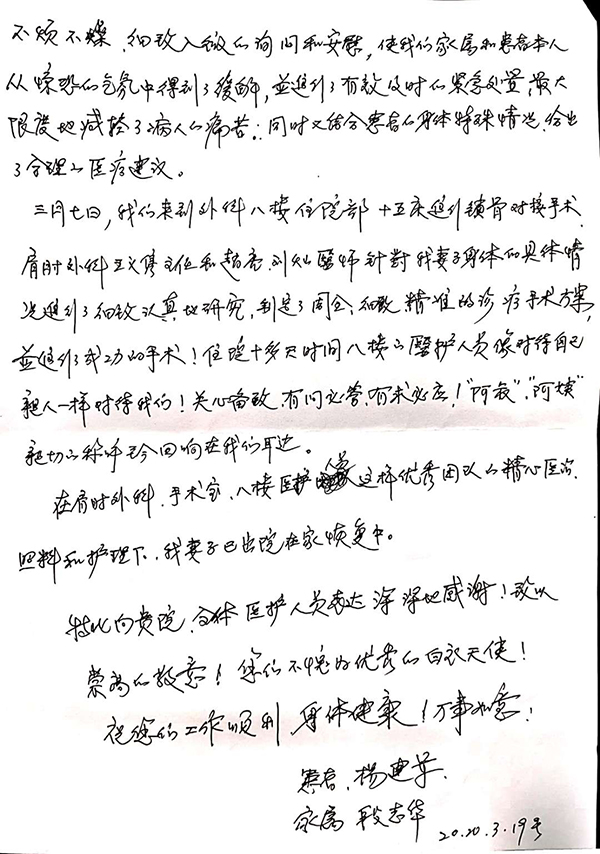 不烦不燥、细致入微的询问和安慰，使我们家属和患者本人
从惊恐的气氛中得到了缓解，並进行了有效及时的紧急处置，最大
限度地减轻了病人的痛苦。同时又结合患者的身体特殊情况，给出
了合理的医疗建议。
三月七日，我们来到外科八楼住院部十五床进行锁骨对接手术
肩肘外科王义偉主任和赵亮、刘灿醫师针對我妻子身体的具体情
况进行了细致认真地研究，制定了周全、细致、精准的诊疗手术方案，
並进行了成功的手术！住院十多天时间八楼的醫护人员像对待自己
親人一样对待我们！关心备致、有问必答、有求必应！“阿叔”、“阿姨”
親切的称呼至今回响在我们耳边。
在肩肘外科、手术室、八楼医护人员这样优秀团队的精心医治、
照料和护理下，我妻子已出院在家恢复中。
特此向贵院、全体医护人员表达深深地感谢！致以
崇高的敬意！您们不愧为优秀的白衣天使！
祝您们工作顺利、身体健康！万事如意！
患者：杨
家属 段志华 2020.3.19号